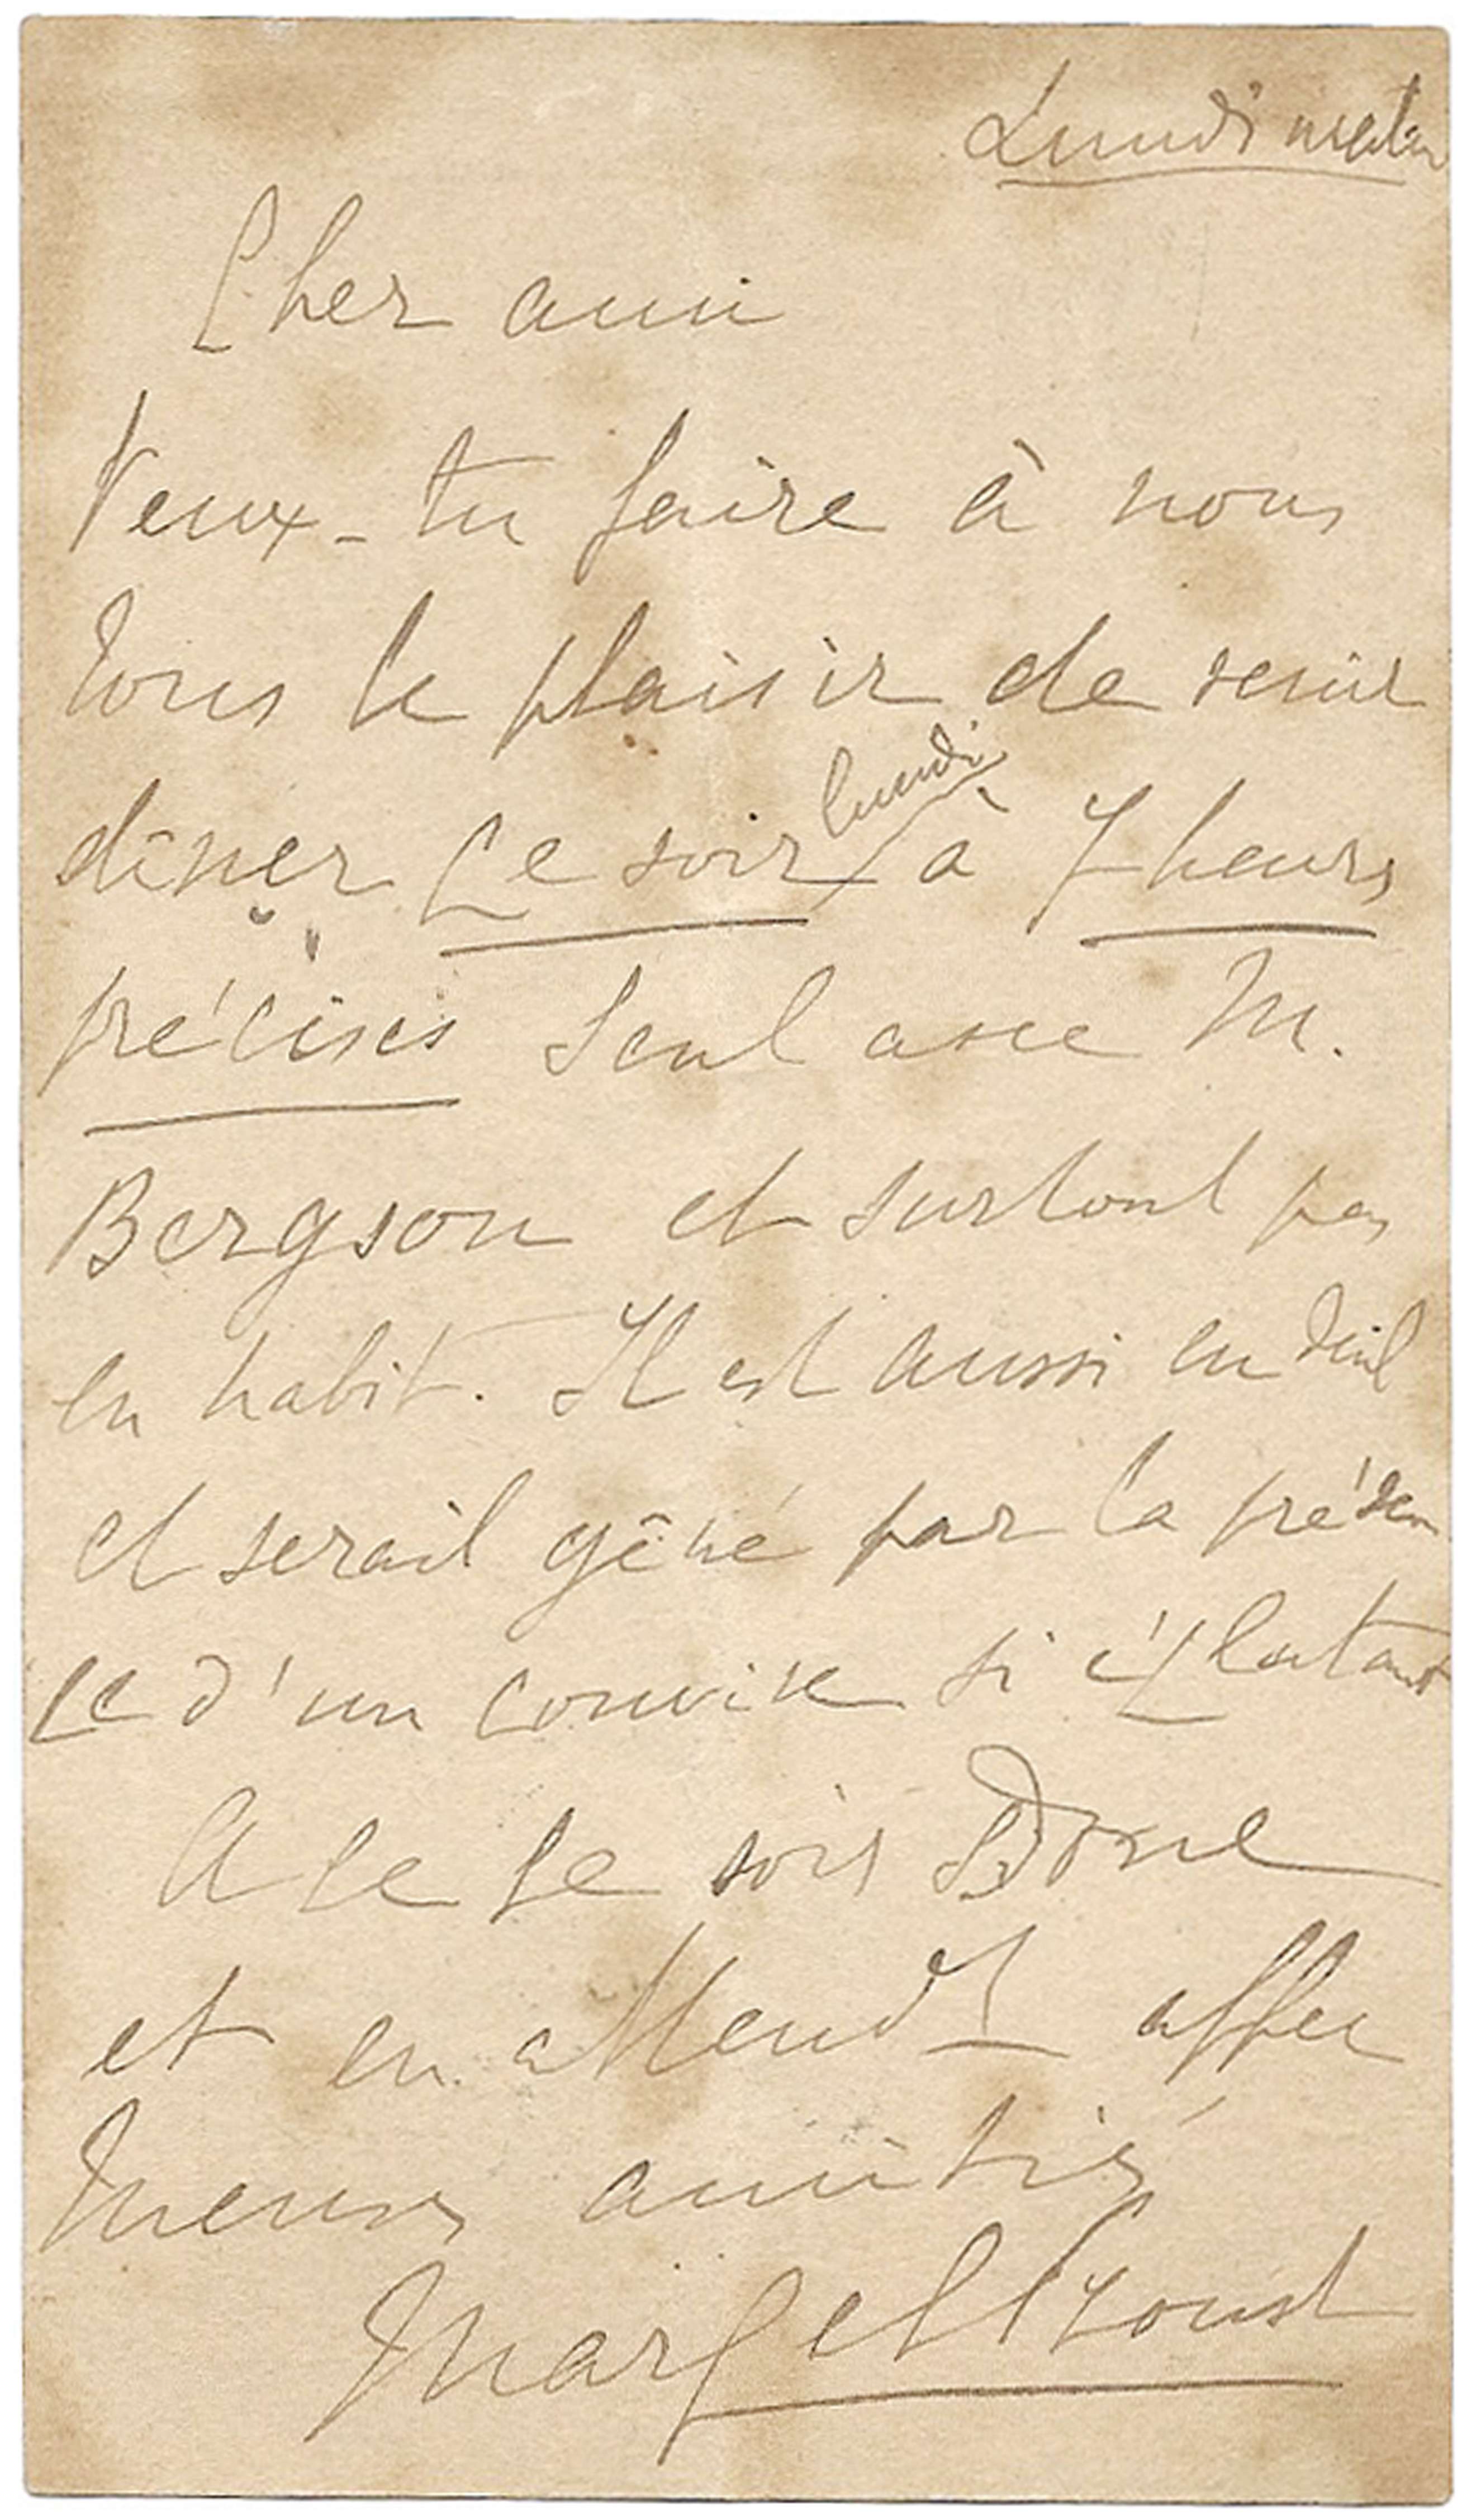 Lundi matin
Cher ami
Veux-tu faire à nous
tous le plaisir de venir
dîner ce soir lundi à 7 heures
précises seul avec M.
Bergson et surtout pas
en habit. Il est aussi en deuil
et serait gêné par la présen
ce d'un convive si éclatant
A ce soir donc
et en attendt affec
tueuses amitiés
Marcel Proust